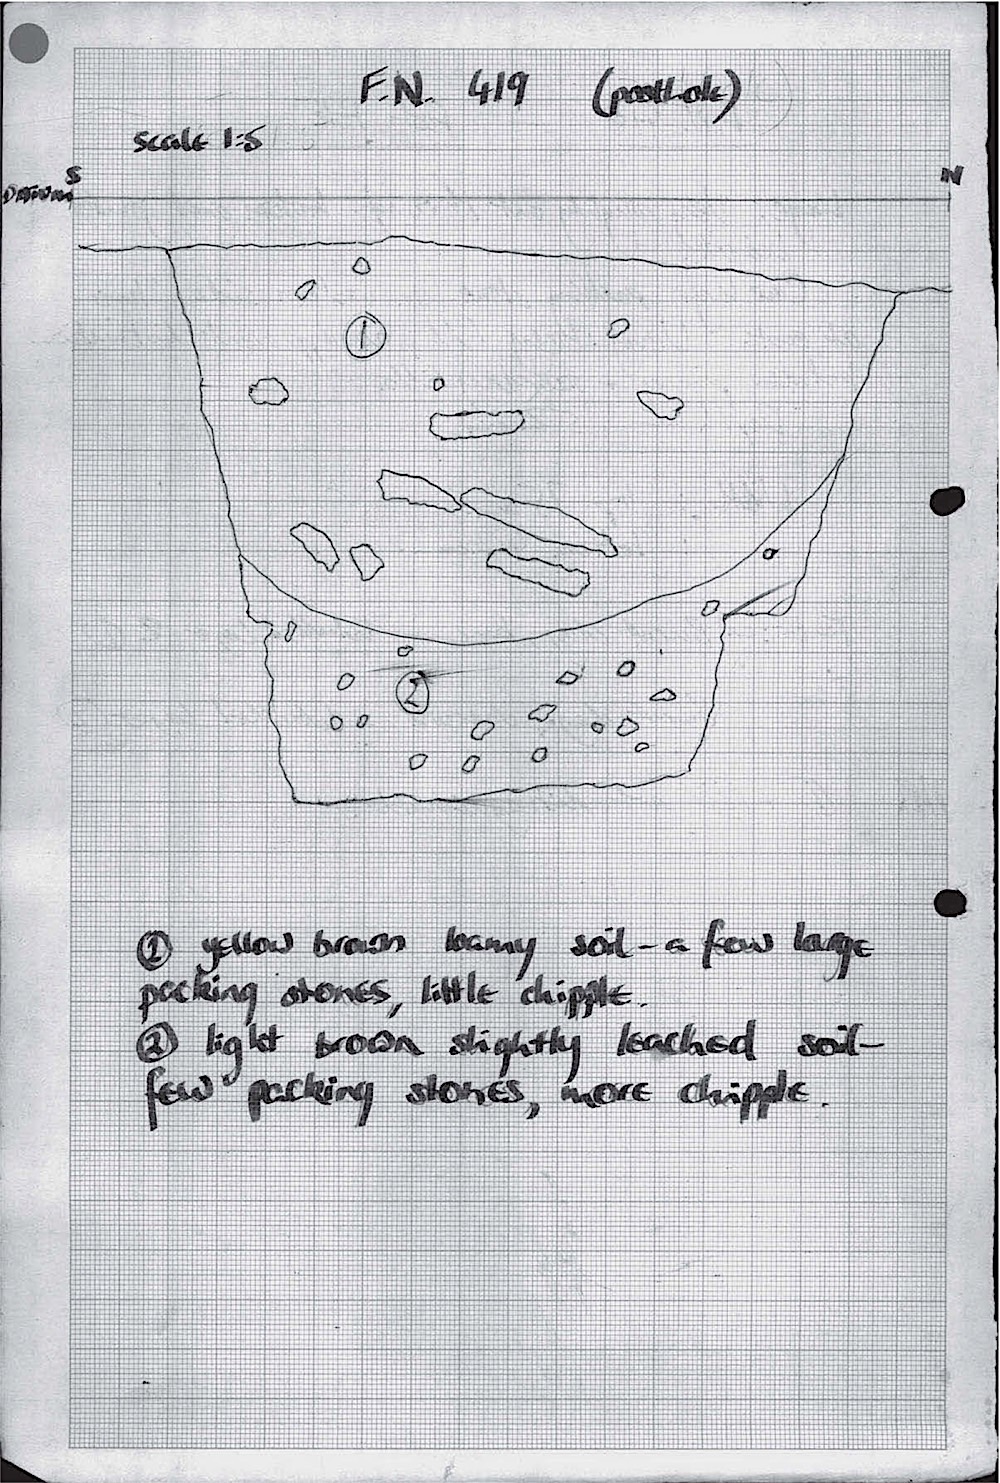 F.N. 419 (posthole)
Scale 1:5
S N
DATUM
1
2
① yellow brown loamy soil - a few large
packing stones, little chipple.
② light brown slightly leached soil-
few packing stones, more chipple.